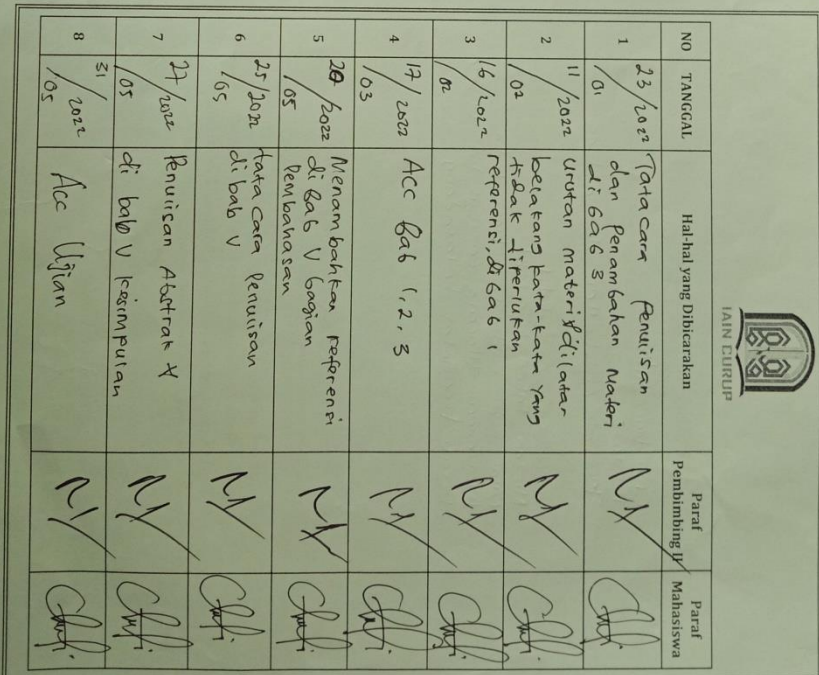 IAIN CURUP
NO TANGGAL Hal-hal yang Dibicarakan Paraf Pembimbing II Paraf Mahasiswa
1 23/2022/01 Tatacara Penulisan
dan Penambahan Materi
di bab 3
2 11/2022/02 Urutan materi & dilatar
belakang kata-kata yang
tidak diperlukan
3 16/2022/02 referensi, di bab 1
4 17/2022/03 Acc Bab 1, 2, 3
5 20/2022/05 Menambahkan referensi
di Bab V bagian
Pembahasan
6 25/2022/05 tata cara Penulisan
di bab V
7 27/2022/05 Penulisan Abstrak &
di bab V kesimpulan
8 31/2022/05 Acc Ujian